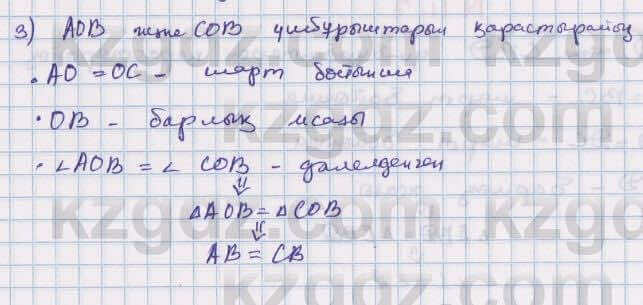 3) AOB және COB үшбұрыштарын қарастырайық
• AO = OC - шарт бойынша
• OB - барлық
• ∠AOB = ∠ COB - дәлелденген
⇓
△AOB = △COB
⇓
AB = CB
kzgdz.com